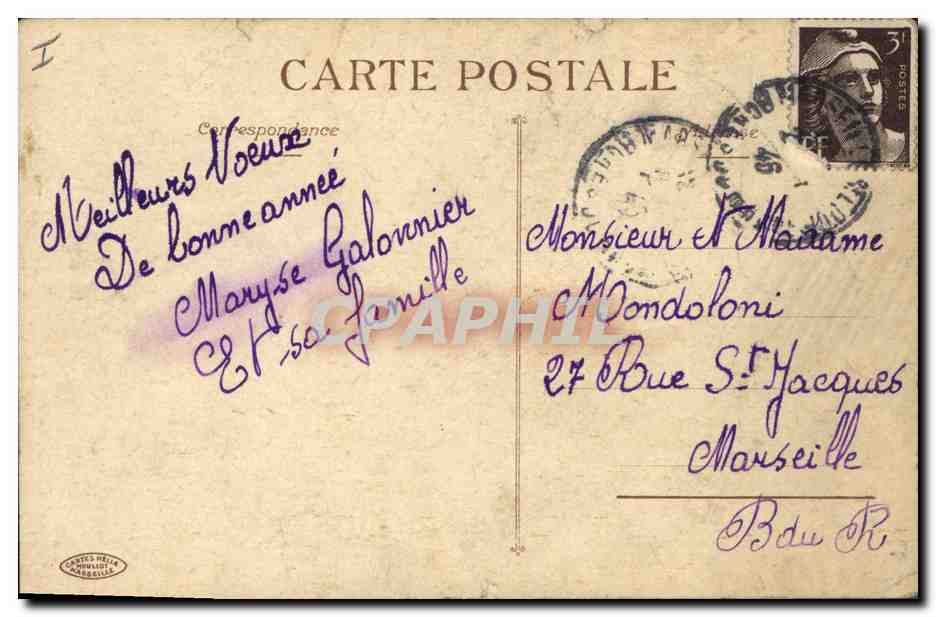 I
CARTE POSTALE
Correspondance
3F
POSTES
RF
Meilleurs Voeux
De bonne année
Maryse Galonnier
Et sa famille
Monsieur et Madame
Mondoloni
27 Rue St Jacques
Marseille
B du R
CPAPHIL
CARTES HELIA
MOULLOT
MARSEILLE